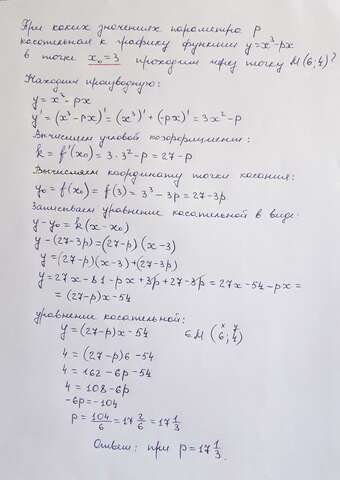 При каких значениях параметра p
касательная к графику функции y=x³-px
в точке x₀=3 проходит через точку M(6;4)?
Находим производную:
y=x³-px
y'=(x³-px)'=(x³)'+(-px)'=3x²-p
Вычисляем угловой коэффициент:
k=f'(x₀)=3·3²-p=27-p
Вычисляем координату точки касания:
y₀=f(x₀)=f(3)=3³-3p=27-3p
Записываем уравнение касательной в виде:
y-y₀=k(x-x₀)
y-(27-3p)=(27-p)(x-3)
y=(27-p)(x-3)+(27-3p)
y=27x-81-px+3p+27-3p=27x-54-px=
=(27-p)x-54
уравнение касательной:
y=(27-p)x-54 ∈M(6;4)
x y
4=(27-p)6-54
4=162-6p-54
4=108-6p
-6p=-104
p=104/6=17 2/6=17 1/3
Ответ: при p=17 1/3.